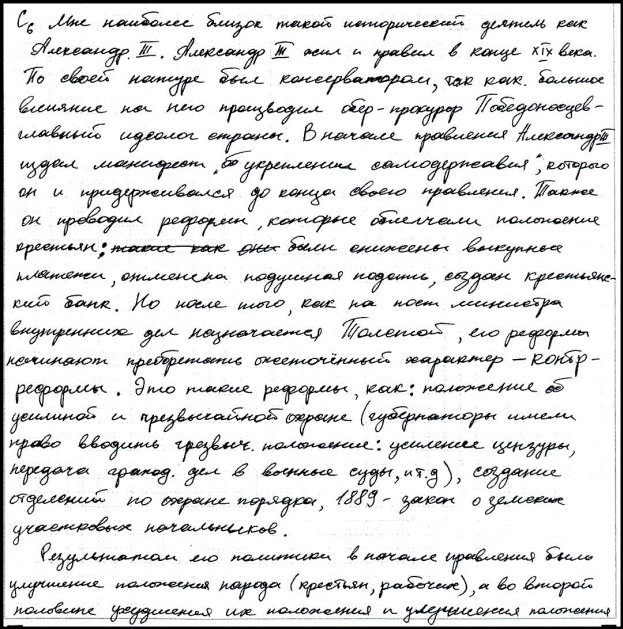 С6 Мне наиболее близок такой исторический деятель как
Александр III. Александр III жил и правил в конце XIX века.
По своей натуре был консерватором, так как большое
влияние на него производил обер-прокурор Победоносцев -
главный идеолог страны. В начале правления Александр III
издал манифест „об укреплении самодержавия", которого
он и придерживался до конца своего правления. Также
он проводил реформы, которые облегчали положение
крестьян: такие как они были снижены выкупные
платежи, отменена подушная подать, создан крестьянс-
кий банк. Но после того, как на пост министра
внутренних дел назначается Толстой, его реформы
начинают преобретать ожесточённый характер – контр-
реформы. Это такие реформы, как: положение об
усилиной и чрезвычайной охране (губернаторы имели
право вводить чрезвыч. положение: усиление цензуры,
передача гражд. дел в военные суды, и т.д), создание
отделений по охране порядка, 1889 - закон о земских
участковых начальниках.
Результатом его политики в начале правления было
улучшение положения народа (крестьян, рабочих), а во второй
половине ухудшения их положения и улучшения положения